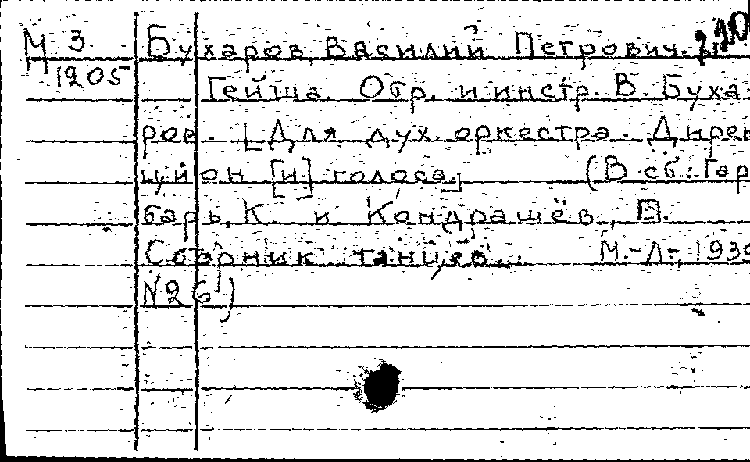 М 3 Бухаров, Василий Петрович. 2,10
1205 Гейша. Обр. и инстр. В. Буха-
ров. [Для дух. оркестра. Дирек-
цион [и] голоса.] (В сб.: Гар-
барь, К. и Кондрашёв, В.
Сборник танцев... М.-Л., 1939
№26)